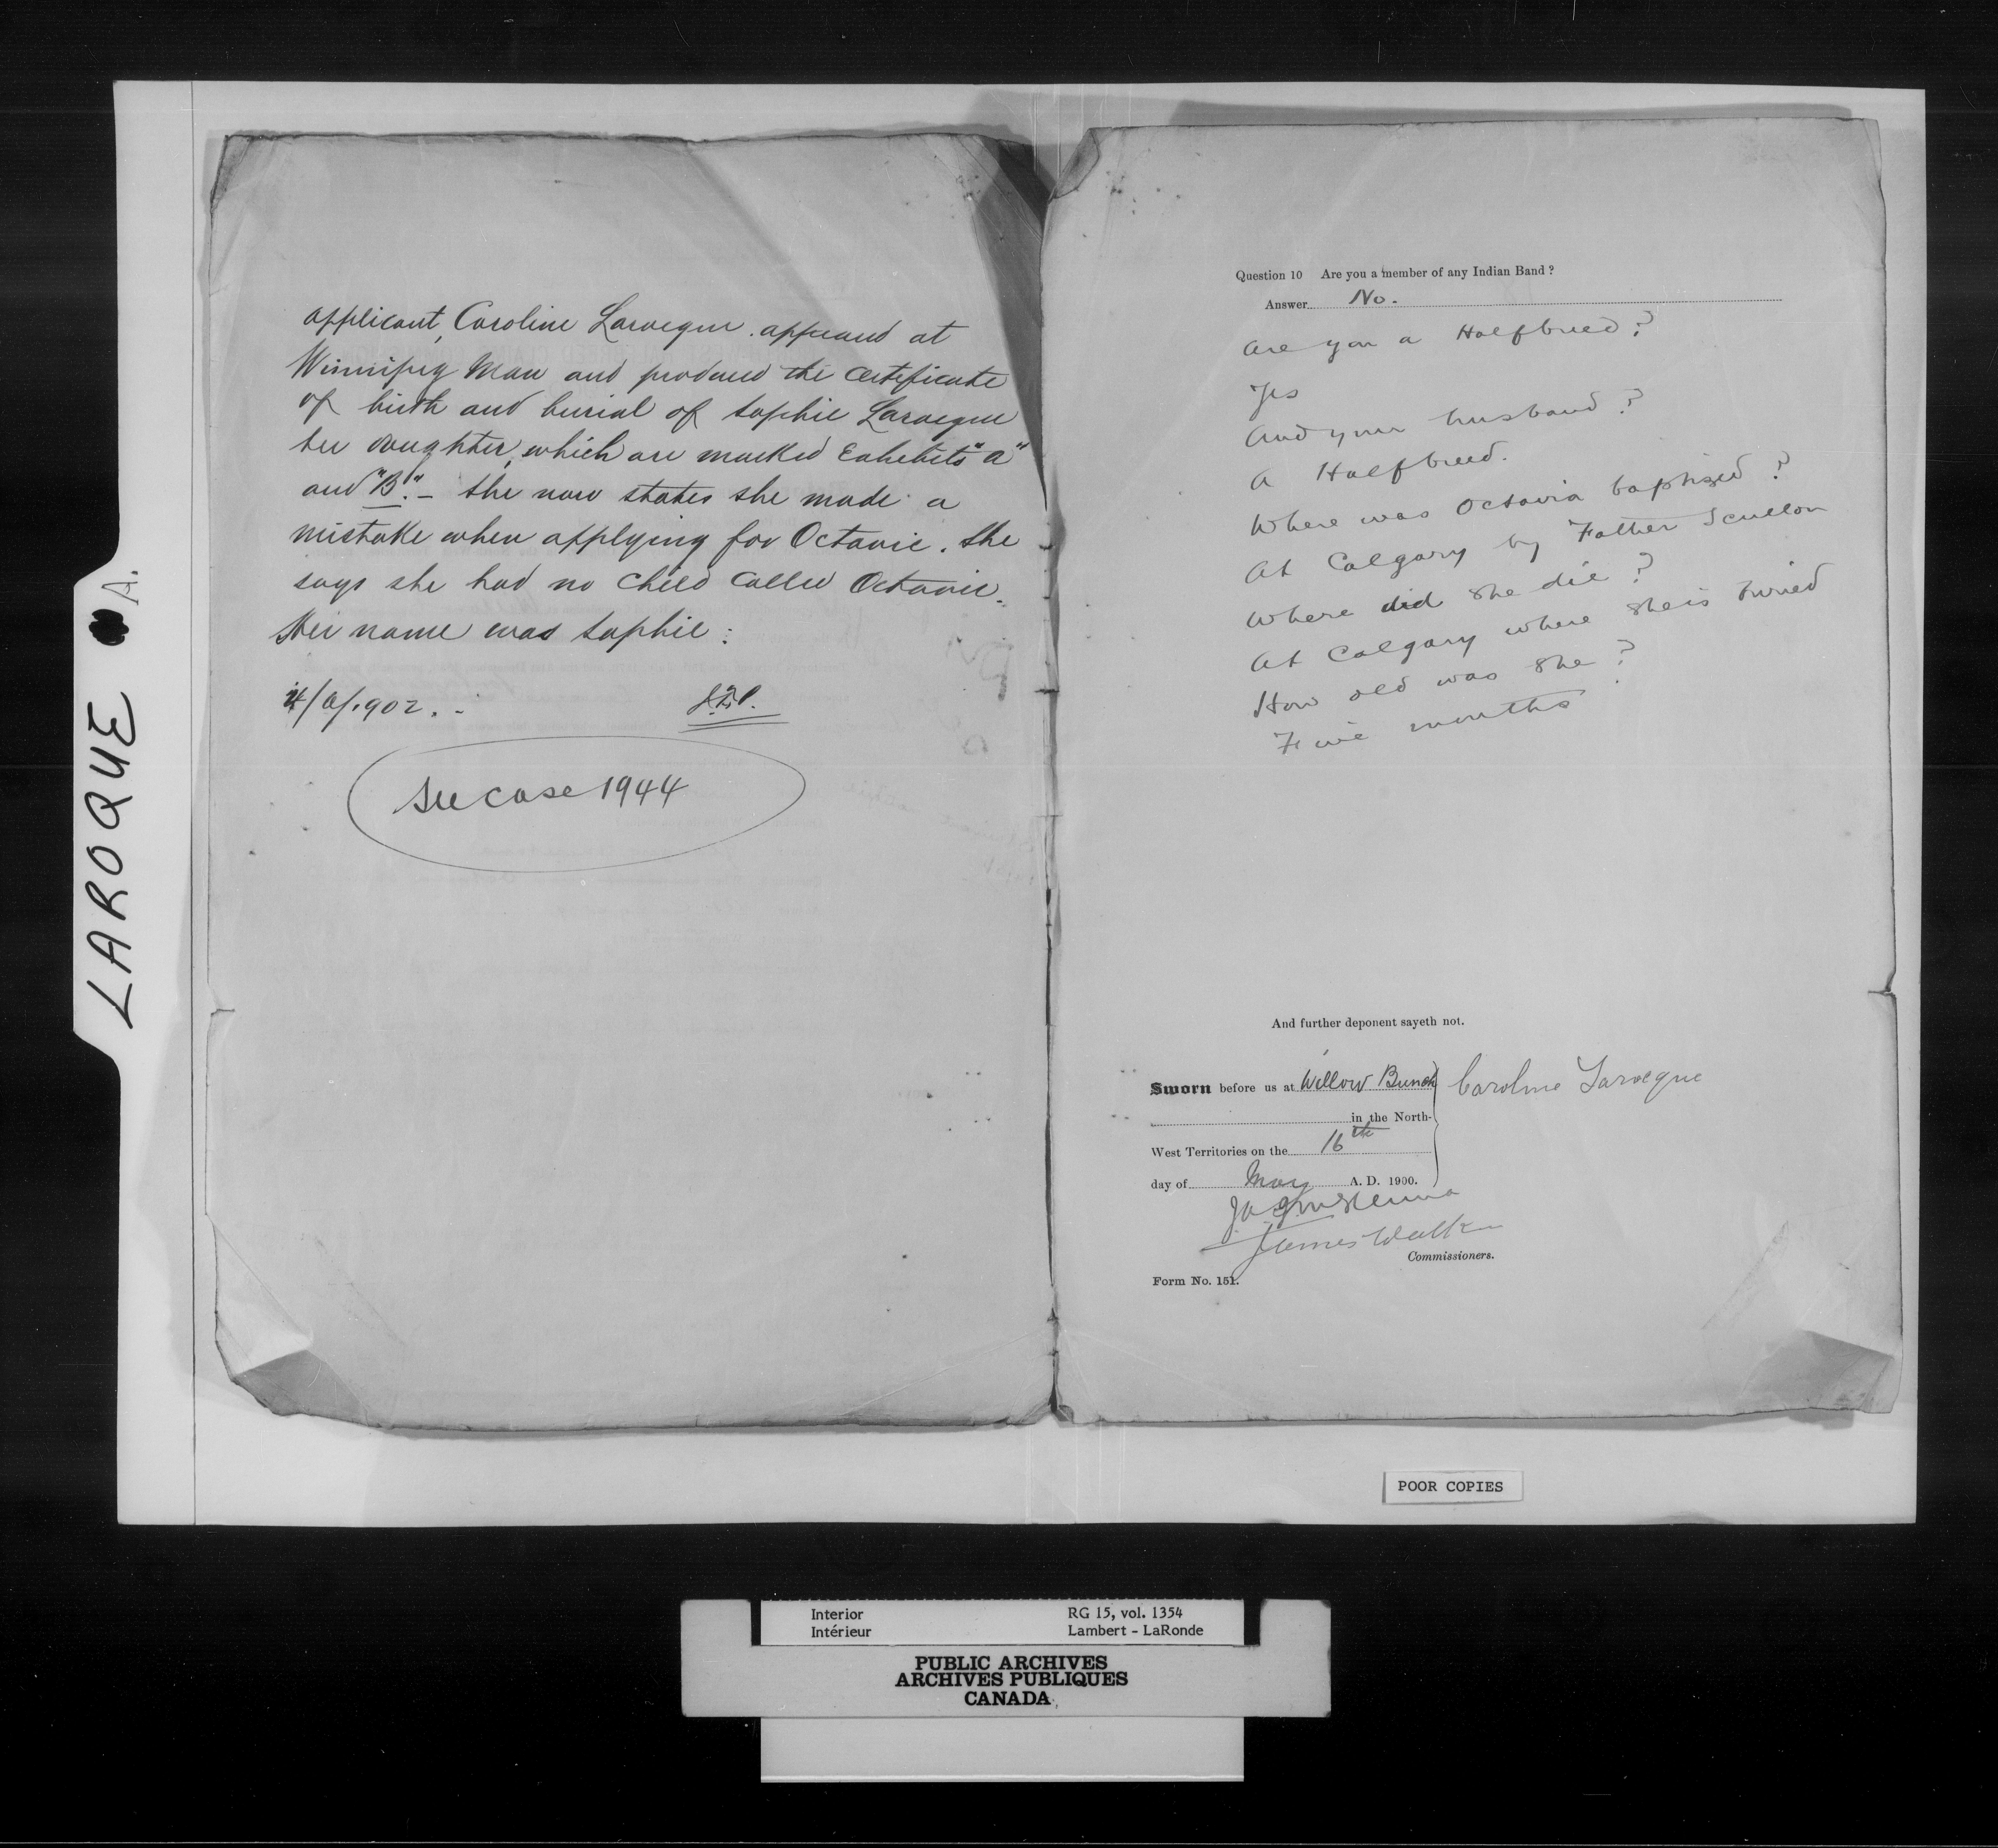 LAROQUE A.
applicant, Caroline Larocque . appeared at
Winnipeg Man and produced the certificate
of birth and burial of Sophie Larocque
her daughter, which are marked Exhibits "A"
and "B". - She now states she made a
mistake when applying for Octavie. She
says she had no child called Octavie.
Her name was Sophie.
See case 1944
Question 10 Are you a member of any Indian Band ?
Answer No.
Are you a Halfbreed?
Yes
And your husband?
A Halfbreed.
Where was Octavia baptised?
At Calgary by Father Scullon
Where did she die?
At Calgary where she is buried
How old was she?
Five months
And further deponent sayeth not.
Sworn before us at Willow Bunch
in the North-
West Territories on the 16th
day of May A. D. 1900.
Caroline Larocque
James Walker
Commissioners.
Form No. 151.
POOR COPIES
Interior RG 15, vol. 1354
Intérieur Lambert - LaRonde
PUBLIC ARCHIVES
ARCHIVES PUBLIQUES
CANADA